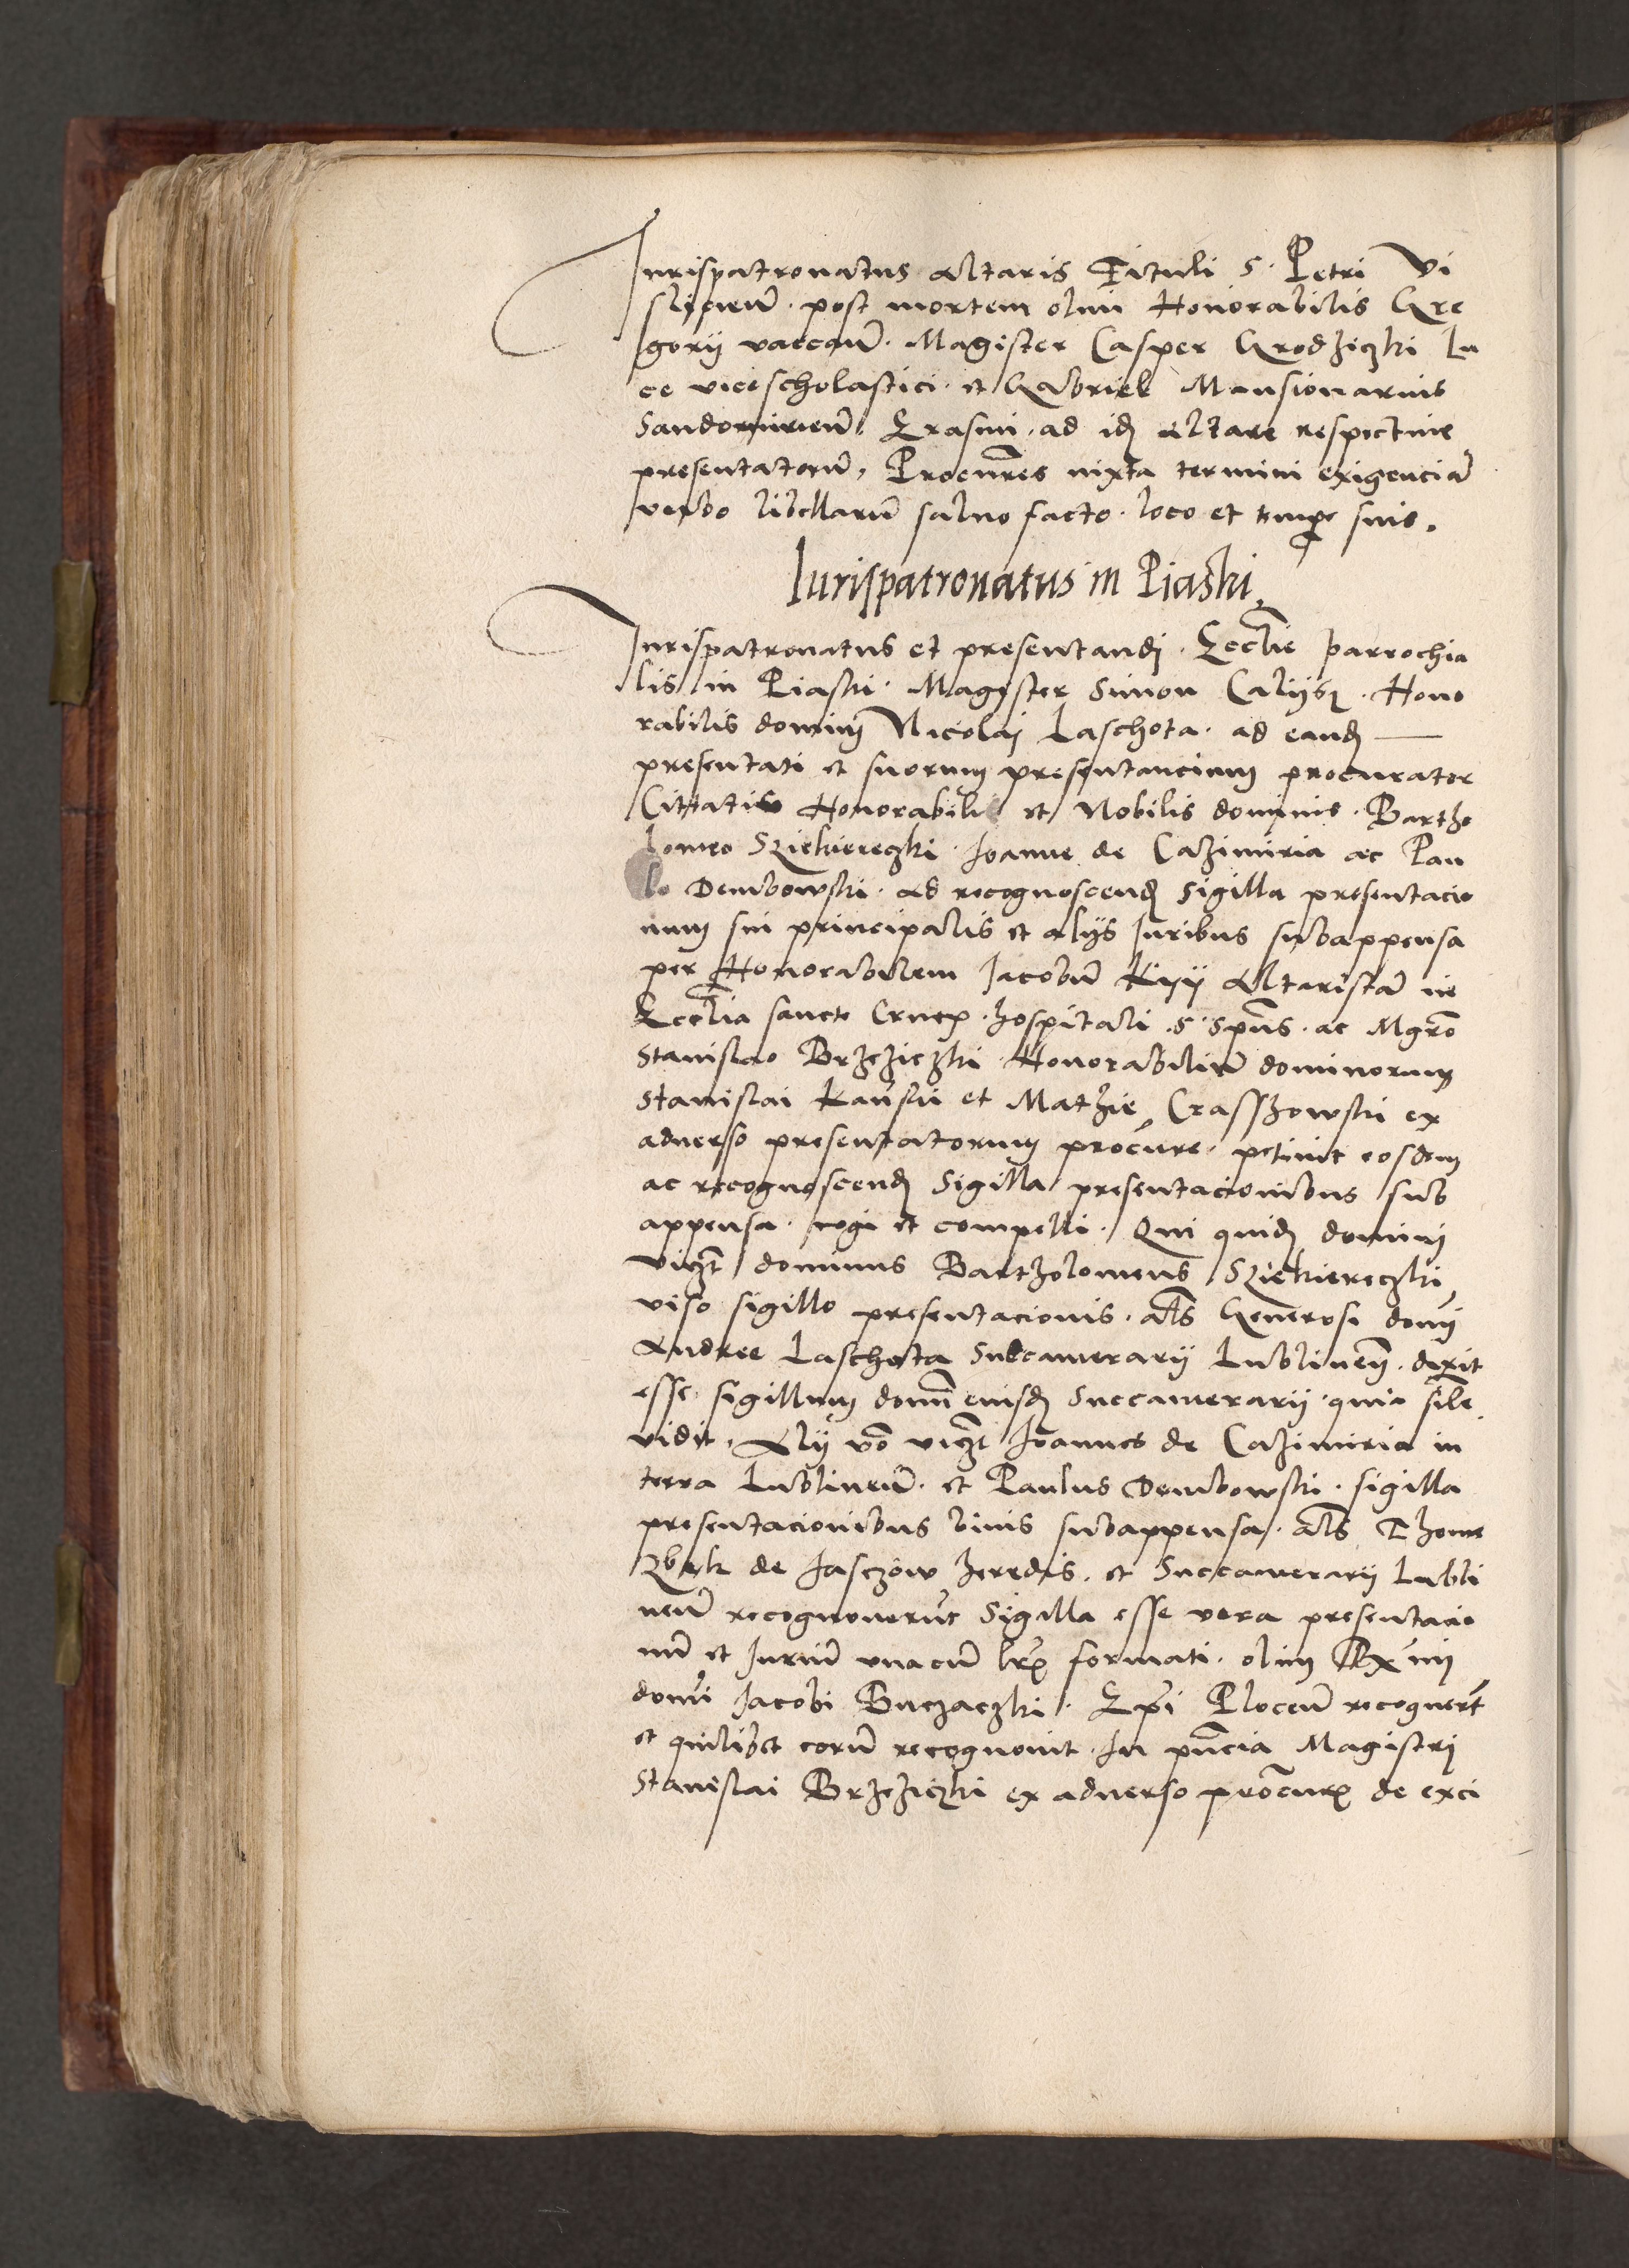 Jurispatronatus Altaris Tituli S. Petri Vi
sliciеn̄. post mortem olim Honorabilis Gre
gorij vacan̄. Magister Casper Grodziczki Lu
ce vicescholastici. et Gabriel Mansionarius
Sandomirien̄. Erasmi. ad id̄ Altare respective
presentatorū, Procur̄res iuxta termini exigenciā
verbo libellarū salvo facto. loco et tempe suis.
Jurispatronatus in Piaski,
Jurispatronatus et presentand̄. Eccl̄ie parrochia
lis in Piaski. Magister Simon Honō
rabilis domini Nicolai Laschota. ad eand̄
presentati et suorum presentancium procurator
Citatis Honorabili et Nobilis dominis. Bartho
lomeo Sziekiereczki. Joanne de Cazimiria ac Pau
lo Dembowski. Ad recognoscend̄ Sigilla presentacio
num sui principalis et alijs Juribus subappensa
per Honorabilem Jacobū Kyij Altaristā in
Eccl̄ia sancte Crucis. hospitali. S. Sp̄us. ac Mgr̄o
Stanislao Brzeziczki. Honorabiliū dominorum
Stanislai et Mathie Crasszowski ex
adverso presentatorum procure. petivit eosdem
ac recognoscend̄ Sigilla presentacionibus sub
appensa. cogi et compelli. Qui quid̄ domini
viczt̄ dominus Bartholomeus Sziekiereczki,
viso sigillo presentacionis. al̄s Generosi domī
Andree Laschota Succamerarij Lublinen̄. dixit
esse sigillum domī eiusd̄ Succamerarij. quia sil̄e
vidit. Alij vo viczt̄ Joannes de Cazimiria in
terra Lublinen̄. et Paulus Dembowski. sigilla
presentacionibus binis subappensa. al̄s Thome
de Jasczow heredis. et Succamerarij Lubli
nen̄ recognoverūt Sigilla esse vera presentacio
nū et Juriū unacū lr̄is formati. olim Rx̄mi
domī Jacobi Buczaczki. Ep̄i Plocen̄ recogner̄t
et quilibet eorū recognovit. In pn̄cia Magistri
Stanislai Brzeziczki ex adverso procur̄ de exci